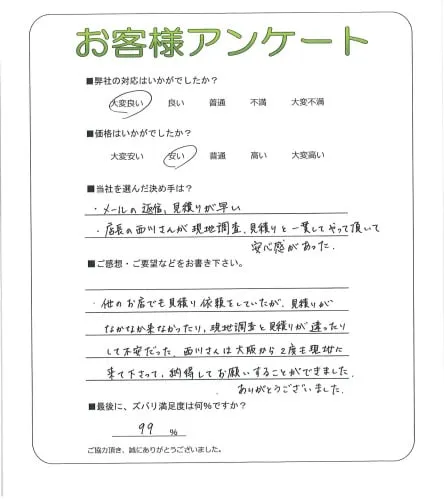 お客様アンケート
■弊社の対応はいかがでしたか？
大変良い 良い 普通 不満 大変不満
■価格はいかがでしたか？
大変安い 安い 普通 高い 大変高い
■当社を選んだ決め手は？
・メールの返信、見積りが早い
・店長の西川さんが現地調査、見積りと一貫してやって頂いて
安心感があった。
■ご感想・ご要望などをお書き下さい。
・他のお店でも見積り依頼をしていたが、見積りが
なかなか来なかったり、現地調査と見積りが違ったり
して不安だった。西川さんは大阪から2度も現地に
来て下さって、納得してお願いすることができました。
ありがとうございました。
■最後に、ズバリ満足度は何%ですか？
99 %
ご協力頂き、誠にありがとうございました。